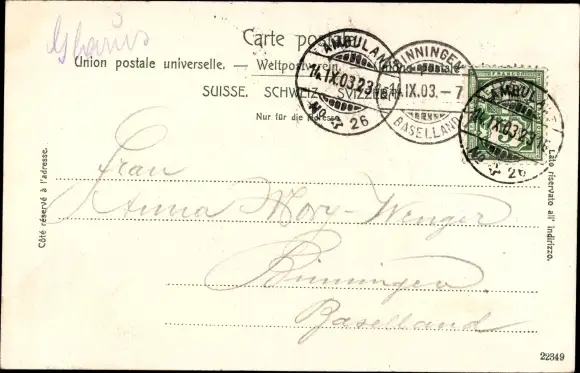 Glarus
Carte postale.
Union postale universelle. — Weltpostverein. —
SUISSE. SCHWEIZ. SVIZZERA.
Nur für die Adresse.
AMBULANT
14.IX.03.23
No 26
BINNINGEN
14.IX.03.-7
BASELLAND
FRANCO
5
AMBULANT
14.IX.03.23
No 26
Côté réservé à l'adresse.
Lato riservato all' indirizzo.
Frau
Anna Mory-Wenger
Binningen
Baselland
22349